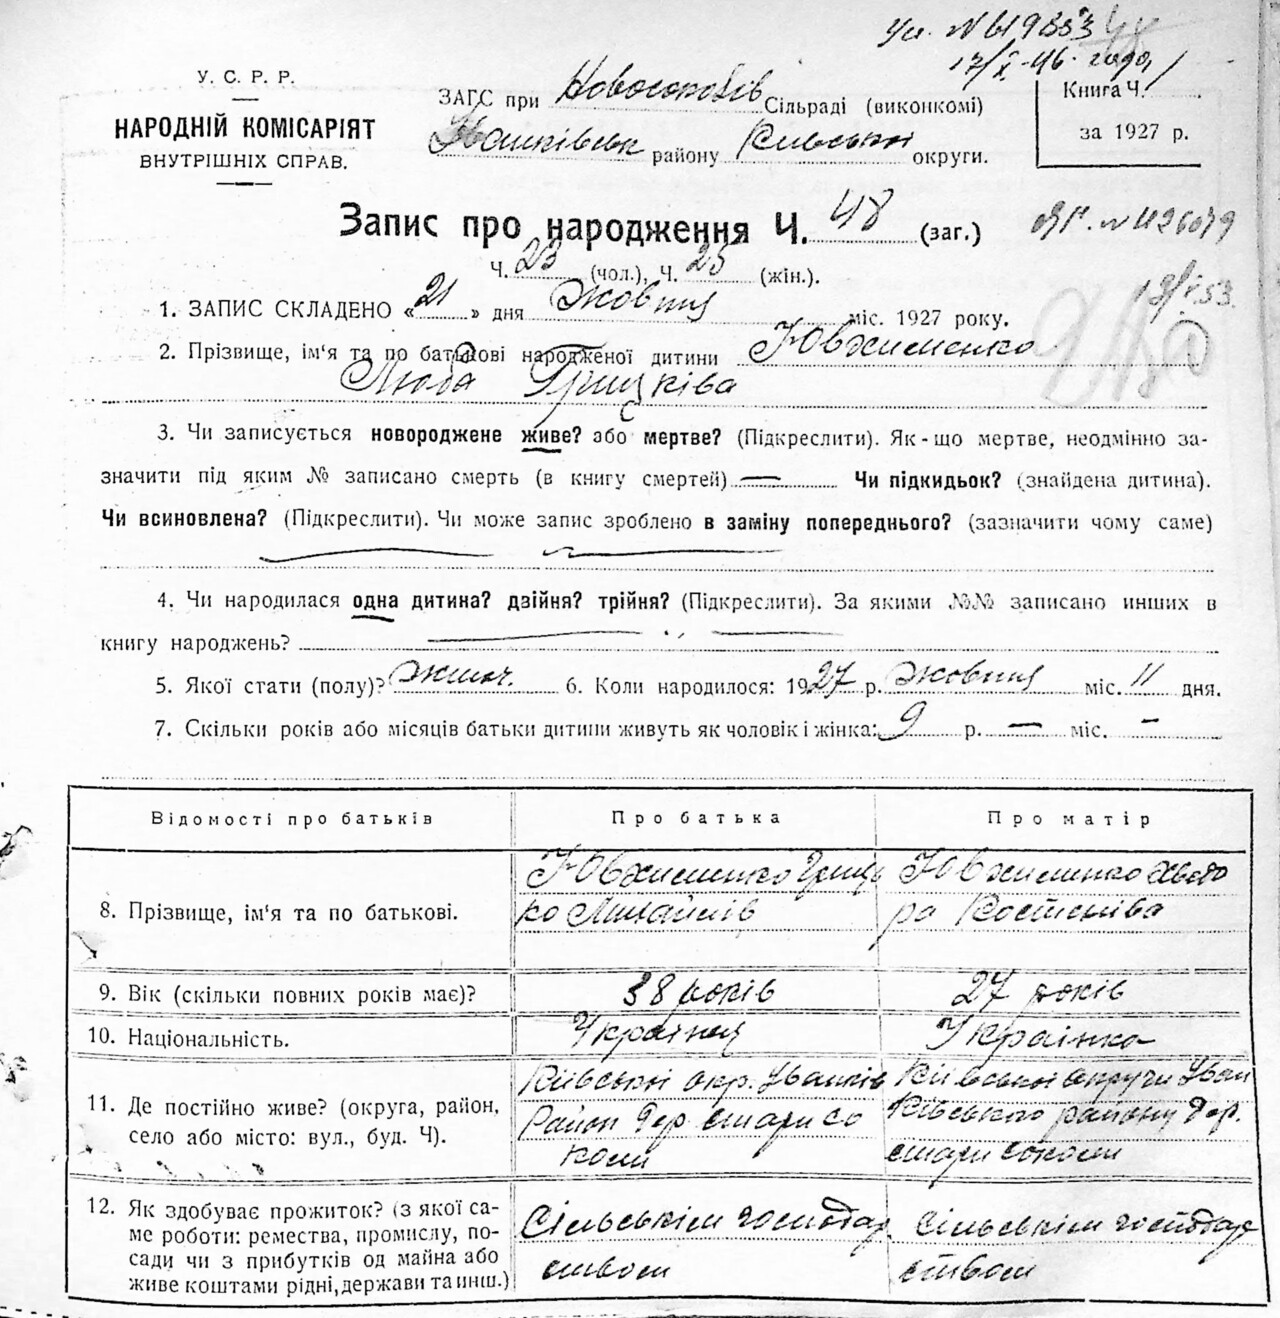 Ум. N 619553
17/X-46 года
У. С. Р. Р.
НАРОДНІЙ КОМІСАРІЯТ
ВНУТРІШНІХ СПРАВ.
ЗАГС при Сільраді (виконкомі)
Іванківськ району Київської округи.
Книга Ч. 1
за 1927 р.
Запис про народження Ч. 48 (заг.)
N 426079
Ч. 23 (чол.), Ч. 25 (жін.).
1. ЗАПИС СКЛАДЕНО «21» дня Жовтня міс. 1927 року.
2. Прізвище, ім'я та по батькові народженої дитини Ювхименко
Люба Грицьківа
3. Чи записується новороджене живе? або мертве? (Підкреслити). Як-що мертве, неодмінно за-
значити під яким № записано смерть (в книгу смертей) — Чи підкидьок? (знайдена дитина).
Чи всиновлена? (Підкреслити). Чи може запис зроблено в заміну попереднього? (зазначити чому саме)
4. Чи народилася одна дитина? двійня? трійня? (Підкреслити). За якими №№ записано инших в
книгу народжень?
5. Якої стати (полу)? жіноч. 6. Коли народилося: 1927 р. Жовтня міс. 11 дня.
7. Скільки років або місяців батьки дитини живуть як чоловік і жінка: 9 р. — міс. —
Відомості про батьків Про батька Про матір
8. Прізвище, ім'я та по батькові. Ювхименко Гриць Ювхименко Хведо
ко Михайлів ра Костенківа
9. Вік (скільки повних років має)? 38 років 27 років
10. Національність. Українец Українка
11. Де постійно живе? (округа, район, Київської окр. Іванків Київської округи Іван
село або місто: вул., буд. Ч). Район дер. стари со ківського району дер.
коли стари соколи
12. Як здобуває прожиток? (з якої са-
ме роботи: ремества, промислу, по- Сільськім господар Сільськім господар
сади чи з прибутків од майна або ством ством
живе коштами рідні, держави та инш.)